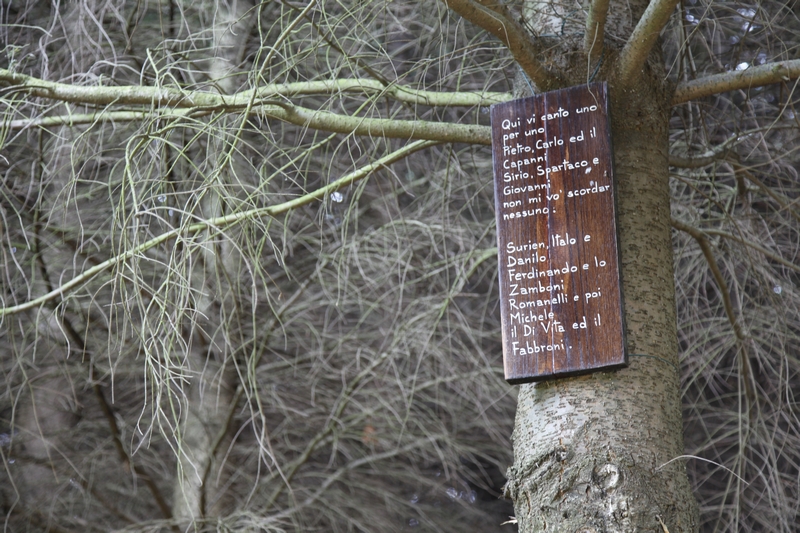 Qui vi canto uno
per uno
Pietro, Carlo ed il
Capanni
Sirio, Spartaco e
Giovanni
non mi vo' scordar
nessuno.
Surien, Italo e
Danilo
Ferdinando e lo
Zamboni
Romanelli e poi
Michele
il Di Vita ed il
Fabbroni.